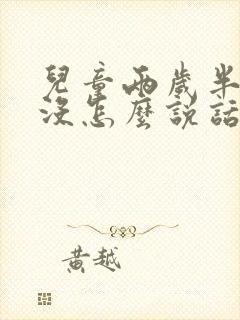 兒童兩歲半
沒怎麼說話
黃越